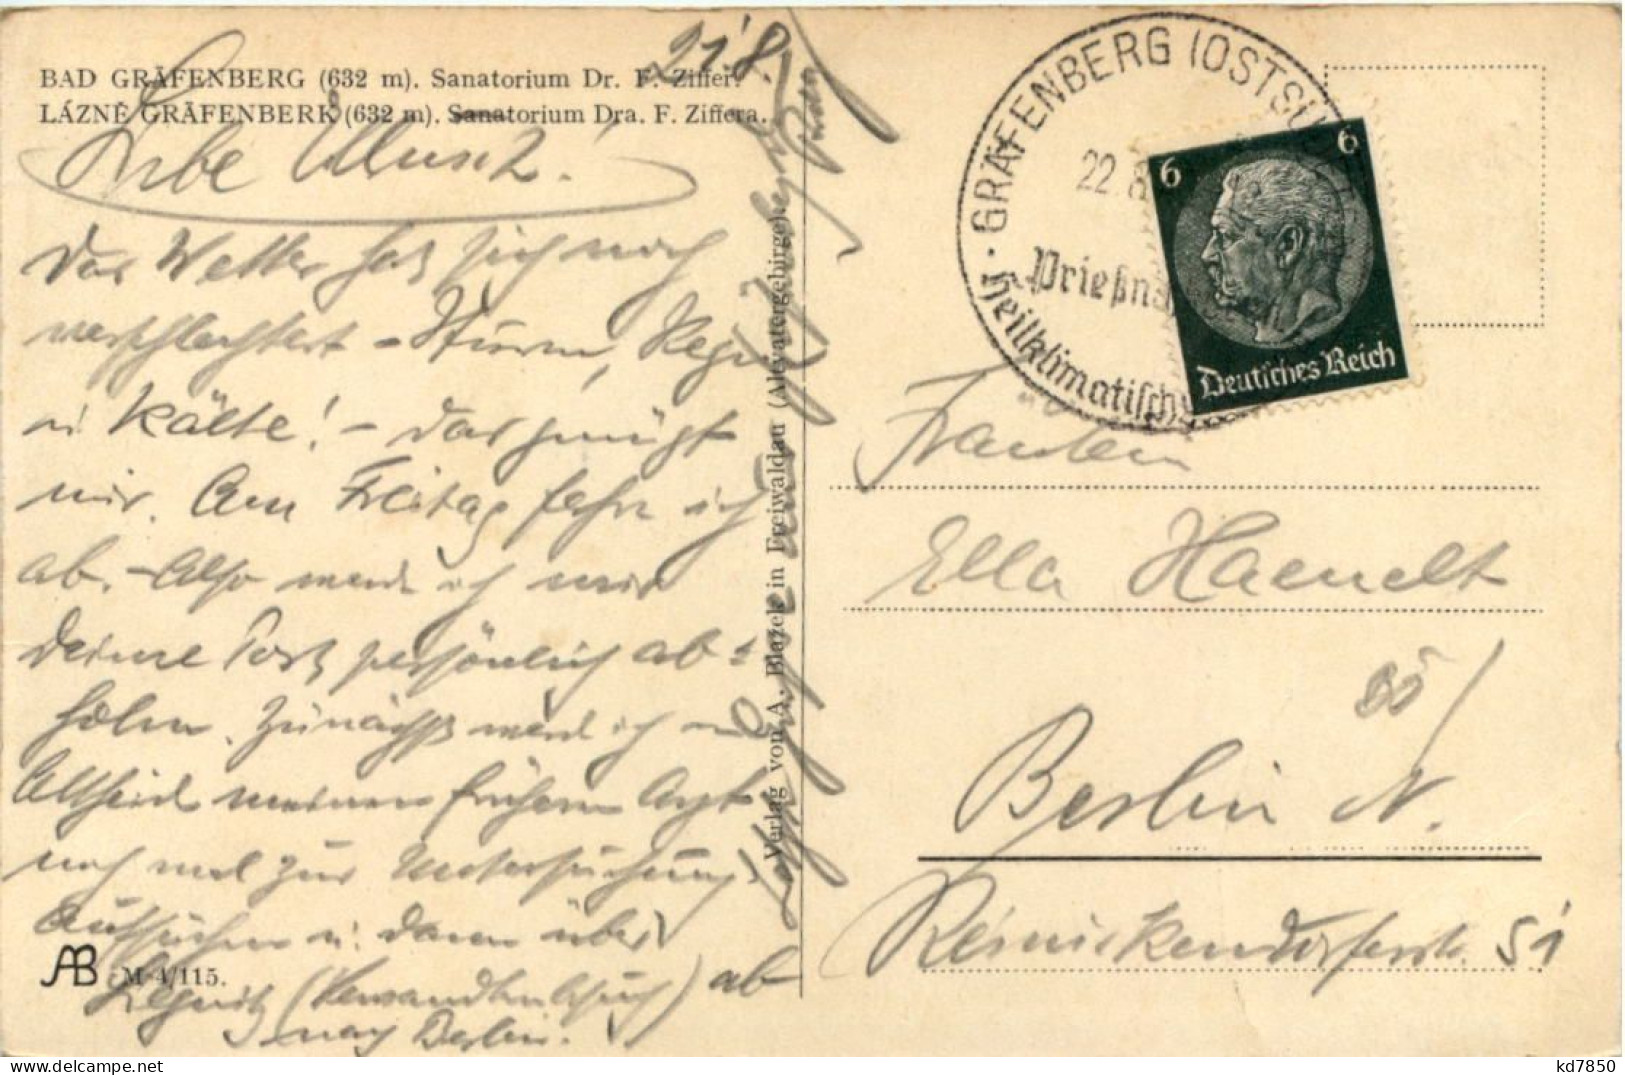 21.8.
BAD GRÄFENBERG (632 m). Sanatorium Dr. F. Ziffer.
LÁZNĚ GRÄFENBERK (632 m). Sanatorium Dra. F. Ziffera.
Liebe
Das Wetter hat sich noch
verschlechtert - Sturm, Regen
u. Kälte! - das genügt
mir. Am Freitag fahre ich
ab. - Also werde ich mir
Deine Post persönlich ab=
holen. Zunächst werde ich
Altheid meinen früheren Arzt
noch mal zur Untersuchung
aufsuchen u. dann über
Liegnitz (Verwandtenbesuch) ab
nach Berlin.
AB M-4/115.
Verlag von A. Blažek in Freiwaldau (Altvatergebirge).
GRÄFENBERG (OSTSU
22.8
Prießn
Heilklimatisch
6 6
Deutsches Reich
Fräulein
Ella Haendelt
65
Berlin N.
Reinickendorferstr. 51
kd7850